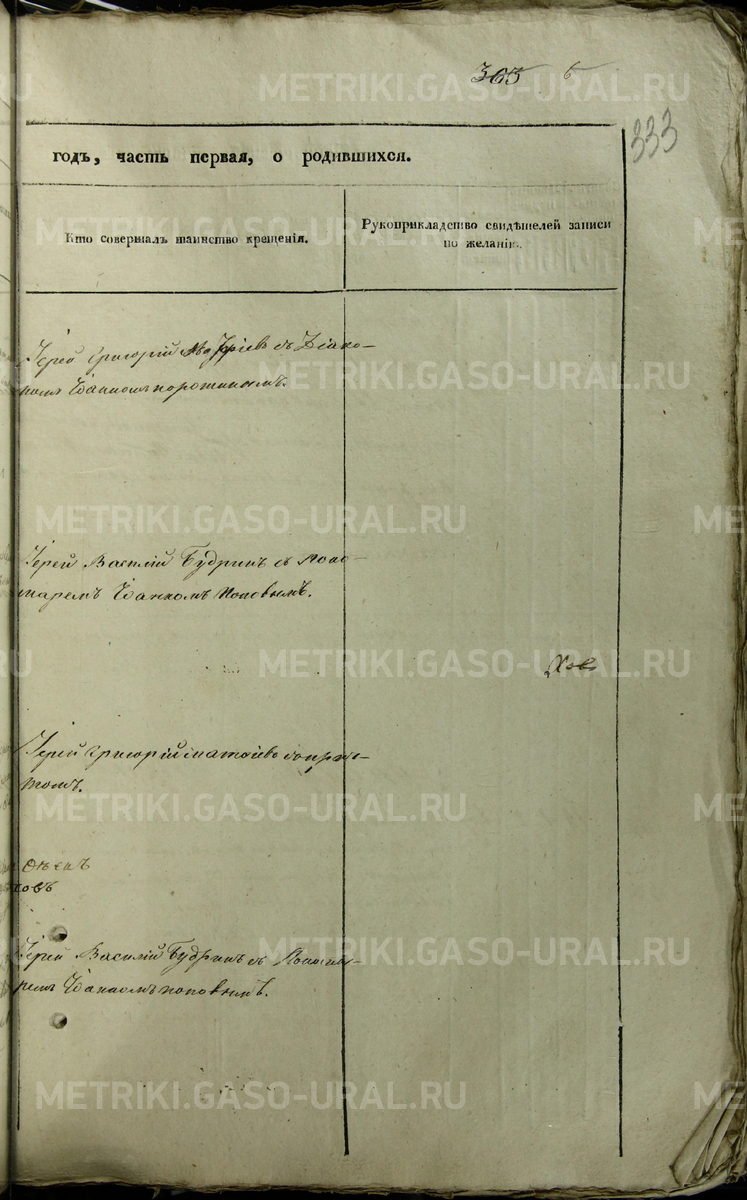 365 б
333
годъ, часть первая, о родившихся.
Кто совершалъ таинство крещенія.
Рукоприкладство свидѣтелей записи
по желанію.
Іерей Григорій съ Діако-
номъ Іоанномъ Порошинымъ.
Іерей Василій Будринъ съ Поно-
маремъ Іоанномъ Поповымъ.
Іерей Григорій
томъ.
овъ
Іерей Василій Будринъ съ Понома-
ремъ Іоанномъ Поповымъ.
METRIKI.GASO-URAL.RU